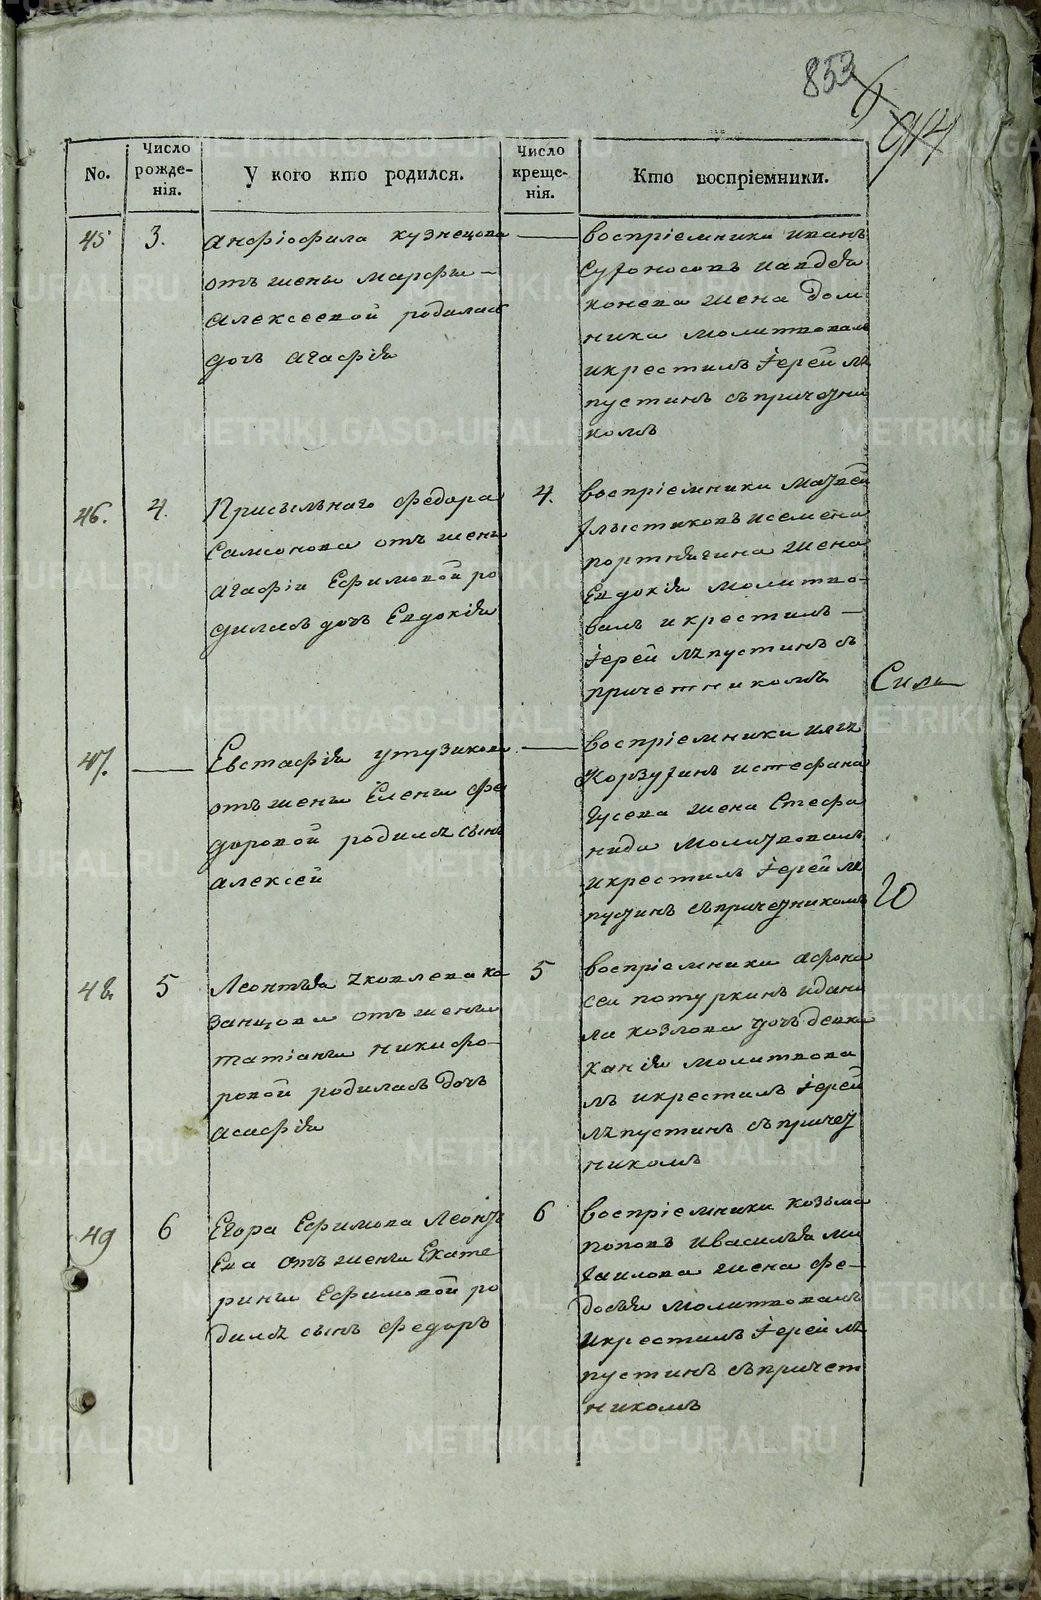 853
914
No.
Число рожде- нія.
У кого кто родился.
Число креще- нія.
Кто воспріемники.
45
3.
Анфіофила Кузнецова
отъ жены Марфы
Алексеевой родилась
дочь Агафія
воспріемники иванъ
Сухоносовъ иавдѣя
конева жена дом
ника молитвовалъ
икрестилъ іерей лѣ
пустинъ съпричетни
комъ
46.
4.
Присыльнаго Федора
Самсонова отъ жены
Агафіи Ефимовой ро
дилась дочь Евдокія
4.
воспріемники Матвей
хлыстиковъ исемена
портнягина жена
Евдокія молитво-
валъ и крестилъ —
іерей лѣпустинъ съ
причетникомъ
Сили
47.
Евстафія утузикова
отъ жены Елены фе
доровой родился сынъ
алексей
воспріемники илья
Корзухинъ истефана
Гусева жена Стефа
нида молитвовалъ
икрестилъ іерей лѣ
пустинъ съпричетникомъ
го
48.
5
Леонтья
ка
занцова отъ жены
татіаны никифо-
ровой родилась дочь
5
воспріемники Афона
сей потуркинъ идани
ла козлова дочь девка
молитвова
лъ икрестилъ іерей
лѣпустинъ съпричет
никомъ
49
6
Егора Ефимова Леонть
Ева отъ жены Екате
рины Ефимовой ро
дился сынъ федоръ
6
воспріемники козьма
поповъ ивасилья ми
хаилова жена фе-
досья молитвовалъ
икрестилъ іерей лѣ
пустинъ съпричет
никомъ
METRIKI.GASO-URAL.RU